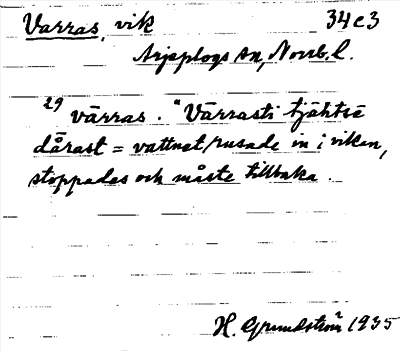 Varras, vik 34c3
Arjeplogs sn, Norrb. l.
29 vārras. "Vārrasti tjāhtsē
dārast = vattnet rusade in i viken,
stoppades och måste tillbaka.
H. Grundström 1935